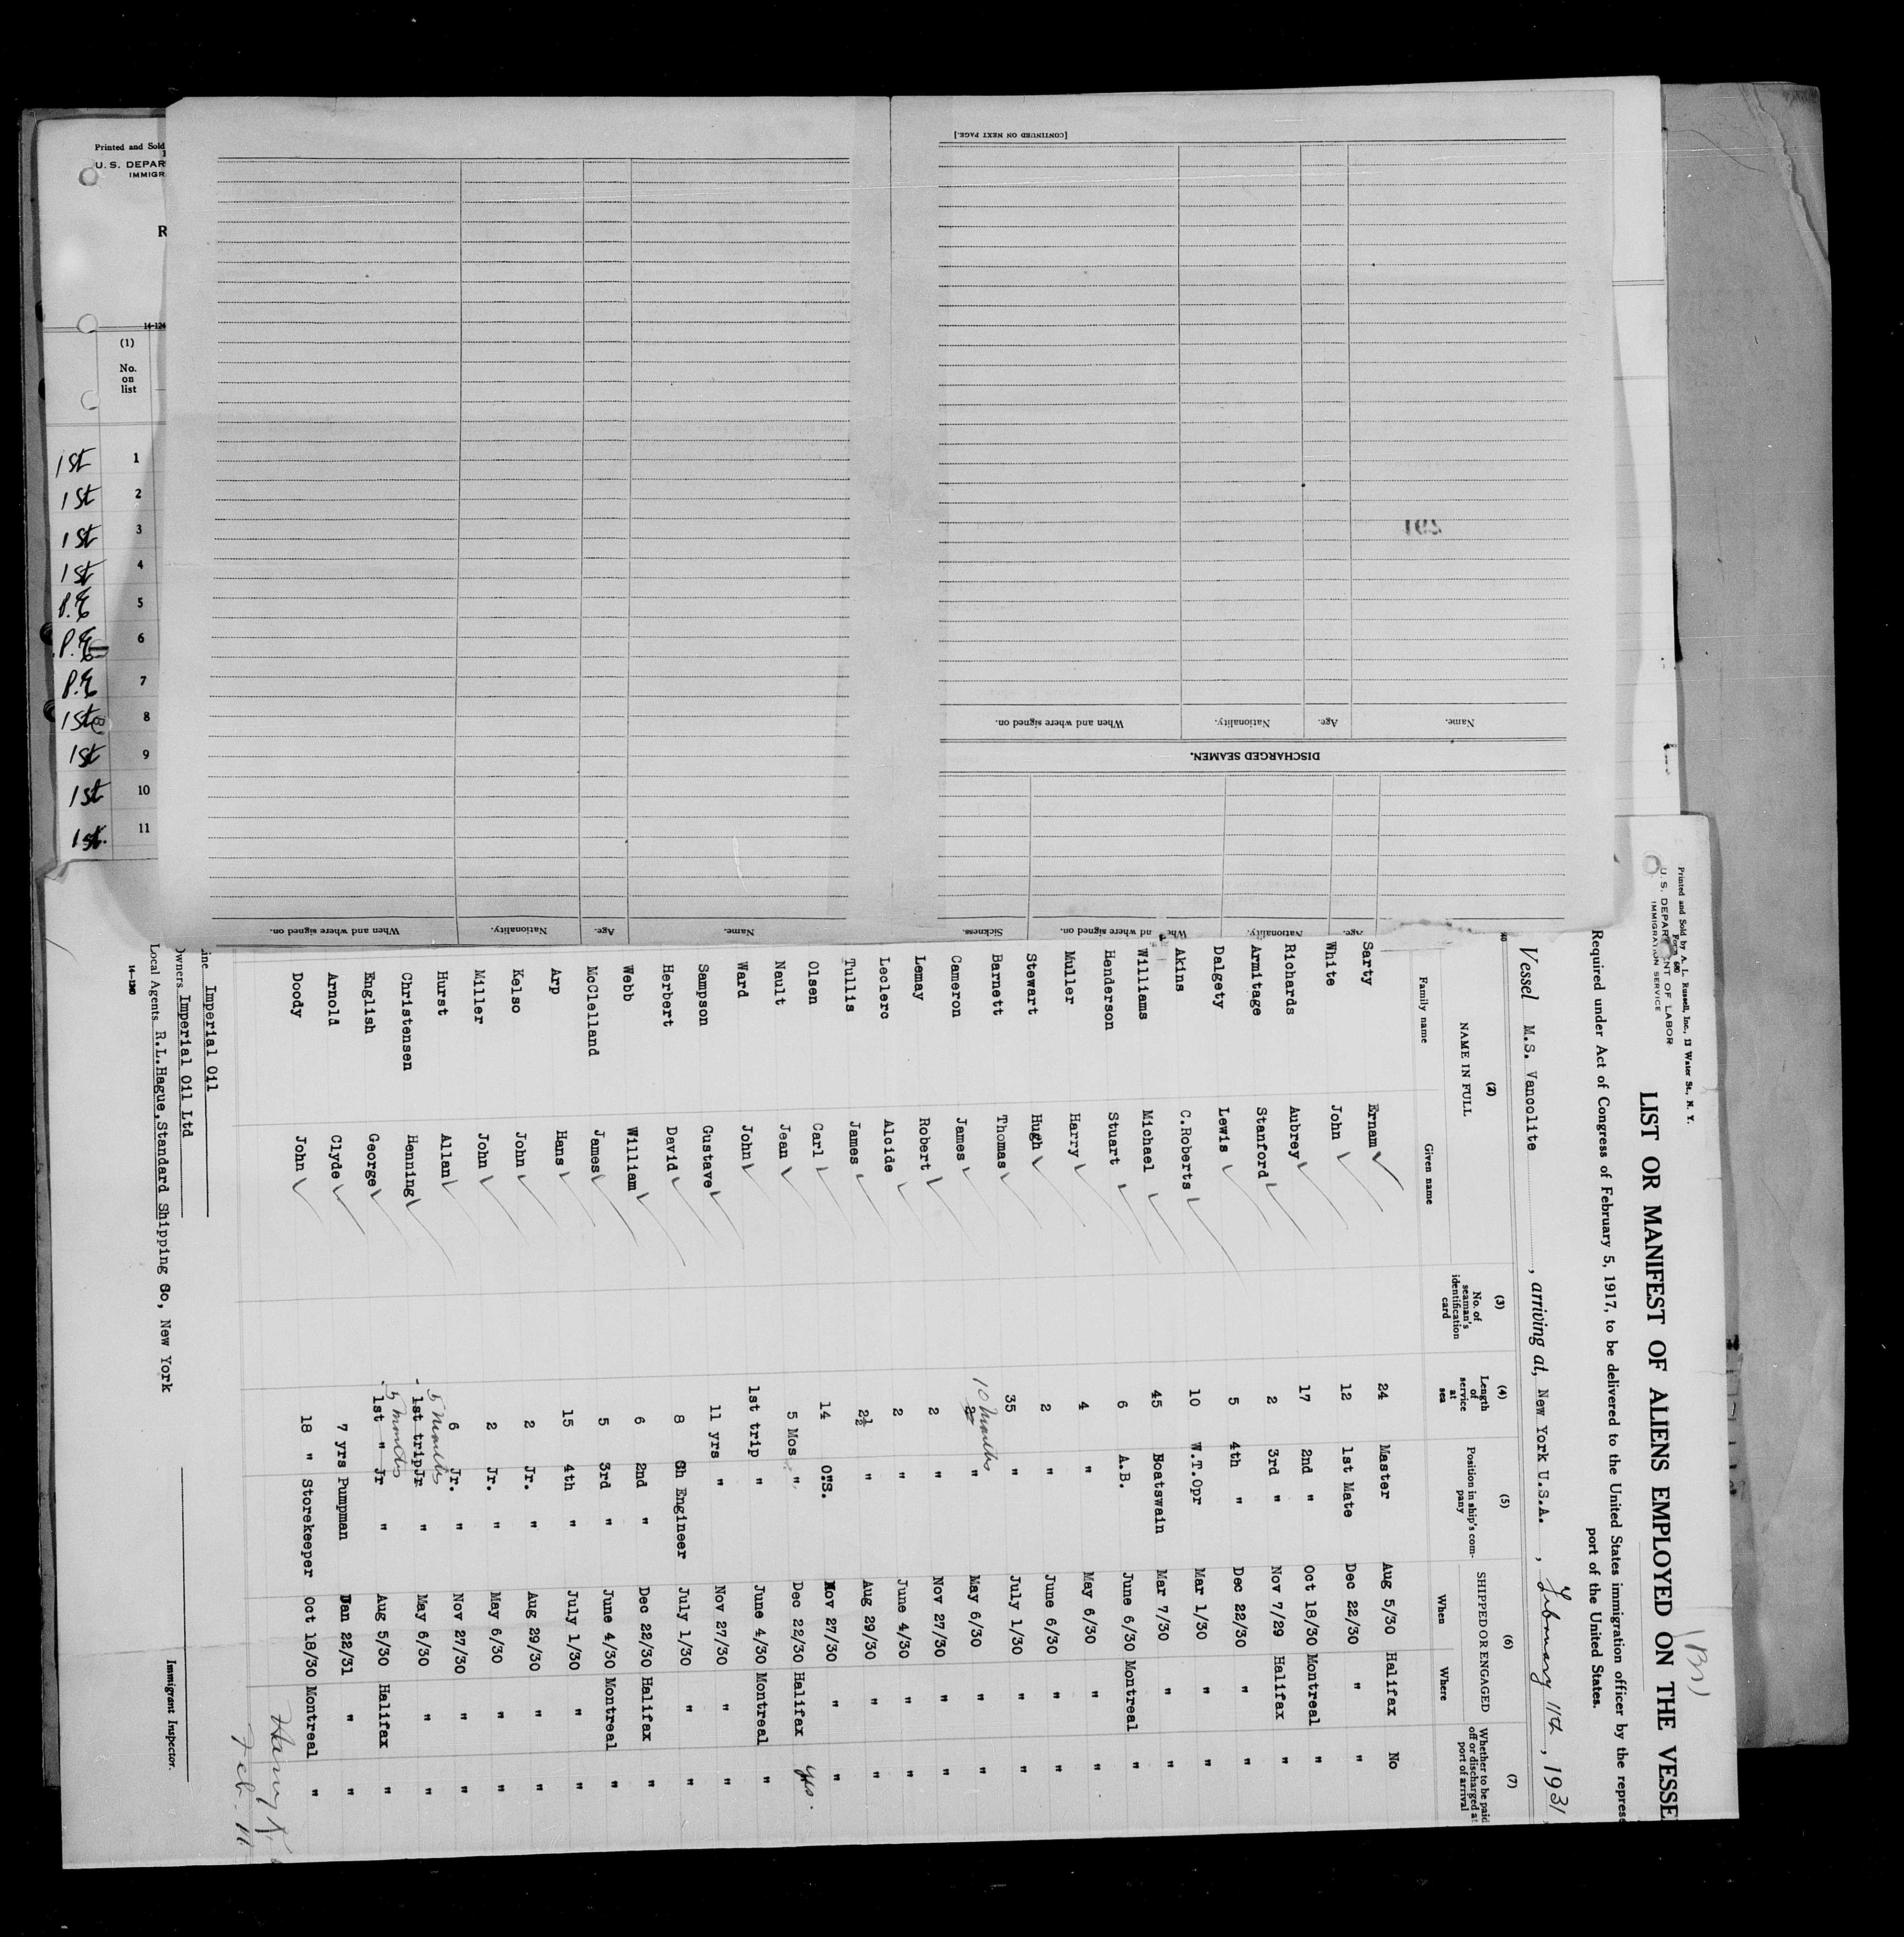 Printed and Sold
U. S. DEPAR
IMMIGR
R
14-124
(1)
No.
on
list
1st 1
1st 2
1st 3
1st 4
P.E 5
P.E 6
P.E 7
1st 8
1st 9
1st 10
1st. 11
[CONTINUED ON NEXT PAGE.]
Name. Age. Nationality. When and where signed on.
DISCHARGED SEAMEN.
Name. Age. Nationality. When and where signed on.
Age. Nationality. nd where signed on. Sickness.
Printed and Sold by A. L. Russell, Inc., 13 Water St., N. Y.
Form 680
U. S. DEPAR NT OF LABOR
IMMIGRATION SERVICE
(Br)
LIST OR MANIFEST OF ALIENS EMPLOYED ON THE VESSE
Required under Act of Congress of February 5, 1917, to be delivered to the United States immigration officer by the represe
port of the United States.
Vessel M.S. Vancolite, arriving at, New York U.S.A., February 11th, 1931,
(2) (3) (4) (5) (6) (7)
NAME IN FULL No. of seaman's identification card Length of service at sea Position in ship's company SHIPPED OR ENGAGED Whether to be paid off or discharged at port of arrival
Family name Given name When Where
Sarty Ernam 24 Master Aug 5/30 Halifax No
White John 12 1st Mate Dec 22/30 " "
Richards Aubrey 17 2nd " Oct 18/30 Montreal "
Armitage Stanford 2 3rd " Nov 7/29 Halifax "
Dalgety Lewis 5 4th " Dec 22/30 " "
Akins C.Roberts 10 W.T.Opr Mar 1/30 " "
Williams Michael 45 Boatswain Mar 7/30 " "
Henderson Stuart 6 A.B. June 6/30 Montreal "
Muller Harry 4 " May 6/30 " "
Stewart Hugh 2 " June 6/30 " "
Barnett Thomas 35 " July 1/30 " "
Cameron James 10 Months " May 6/30 " "
Lemay Robert 2 " Nov 27/30 " "
Leclerc Alcide 2 " June 4/30 " "
Tullis James 2½ " Aug 29/30 " "
Olsen Carl 14 O.S. Nov 27/30 " "
Nault Jean 5 Mos " Dec 22/30 Halifax yes.
Ward John 1st trip " June 4/30 Montreal "
Sampson Gustave 11 yrs " Nov 27/30 " "
Herbert David 8 Ch Engineer July 1/30 " "
Webb William 6 2nd " Dec 22/30 Halifax "
McClelland James 5 3rd " June 4/30 Montreal "
Arp Hans 15 4th " July 1/30 " "
Kelso John 2 Jr. " Aug 29/30 " "
Miller John 2 Jr. " May 6/30 " "
Hurst Allan 6 Jr. " Nov 27/30 " "
5 Months
Christensen Henning 1st trip Jr " May 6/30 " "
5 Months
English George 1st " Jr " Aug 5/30 Halifax "
Arnold Clyde 7 yrs Pumpman Jan 22/31 " "
Doody John 18 " Storekeeper Oct 18/30 Montreal "
ine Imperial Oil
Owners Imperial Oil Ltd
Local Agents R.L.Hague,Standard Shipping Co, New York
14-1240
Feb. 11
Immigrant Inspector.